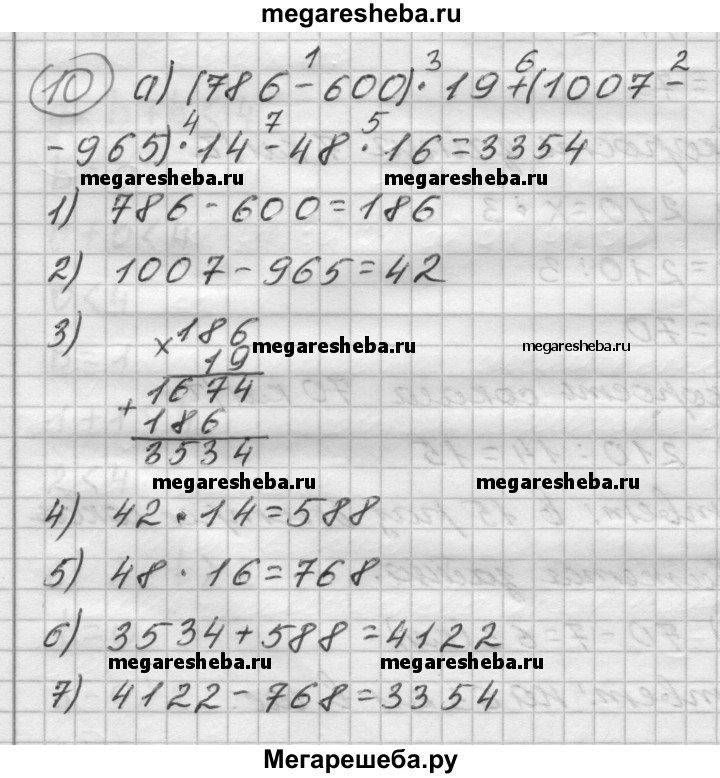 megaresheba.ru
10 а) (786 - 600) · 19 + (1007 -
1 3 6 2
- 965) · 14 - 48 · 16 = 3354
4 7 5
megaresheba.ru megaresheba.ru
1) 786 - 600 = 186
2) 1007 - 965 = 42
3) × 186
megaresheba.ru megaresheba.ru
19
1674
+ 186
3534
megaresheba.ru megaresheba.ru
4) 42 · 14 = 588
5) 48 · 16 = 768
6) 3534 + 588 = 4122
megaresheba.ru megaresheba.ru
7) 4122 - 768 = 3354
Мегарешеба.ру